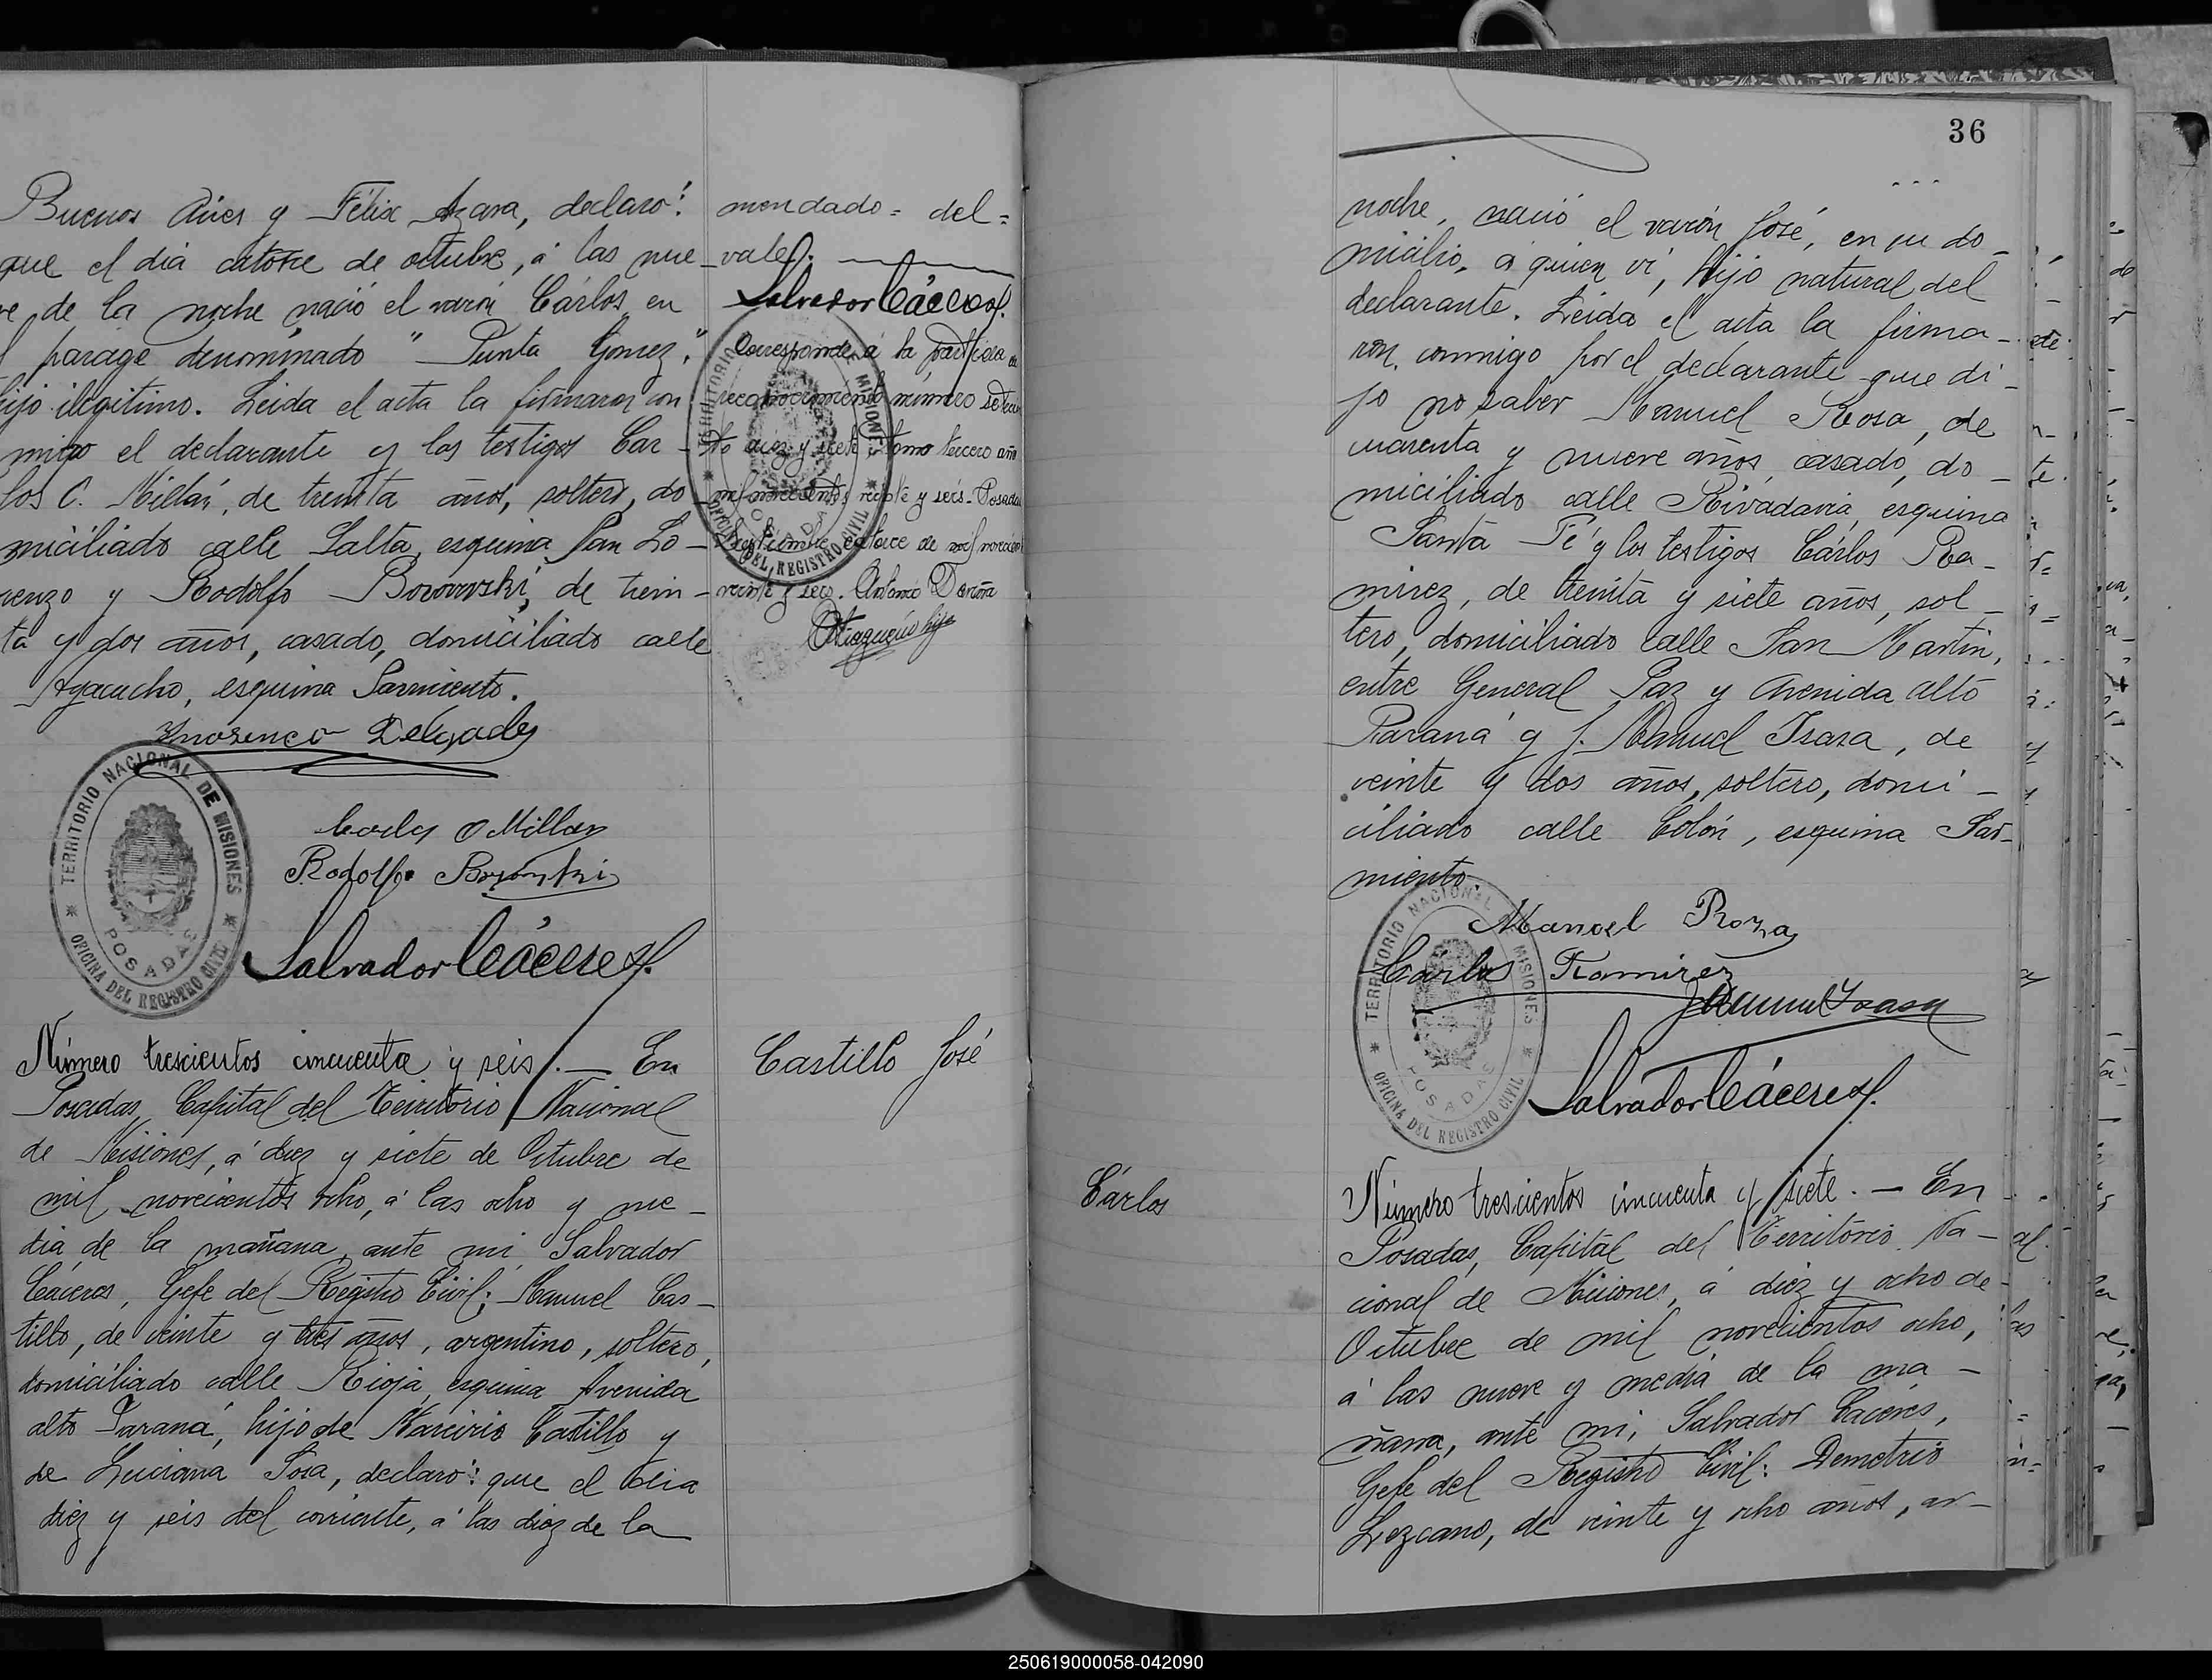 Buenos Aires y Félix Azara, declaró:
que el dia catorce de octubre, á las nue_
ve de la noche nació el varón Cárlos, en
el parage denominado "Punta Gomez",
hijo ilegitimo. Leida el acta la firmaron con
migo el declarante y los testigos Car_
los C. Millán, de treinta años, soltero, do_
miciliado calle Salta, esquina San Lo_
renzo y Rodolfo Bozowski, de trein_
ta y dos años, casado, domiciliado calle
Ayacucho, esquina Sarmiento.
Inosenco Delgado
Carlos C Millan
Rodolfo
TERRITORIO NACIONAL DE MISIONES
POSADAS
OFICINA DEL REGISTRO CIVIL
Salvador Cáceres.
Número trescientos cincuenta y seis. — En
Posadas, Capital del Territorio Nacional
de Misiones, á diez y siete de Octubre de
mil novecientos ocho, á las ocho y me_
dia de la mañana, ante mi, Salvador
Cáceres, Gefe del Registro Civil; Manuel Cas_
tillo, de veinte y tres años, argentino, soltero,
domiciliado calle Rioja, esquina Avenida
alto Paraná, hijo de Narciris Castillo y
de Luciana Sosa, declaró: que el dia
diez y seis del corriente, á las diez de la
mendado = del =
vale).
Salvador Cáceres.
Corresponde á la partida de
reconocimiento número
diez y siete tomo tercero año
mil novecientos veinte y seis. Posadas
Septiembre catorce de mil novecientos
veinte y seis. Antonio
hijo
TERRITORIO MISIONES
POSADAS
OFICINA DEL REGISTRO CIVIL
Castillo José
36
noche, nació el varón José, en su do_
micilio, á quien vi, hijo natural del
declarante. Leida el acta la firma_
ron conmigo por el declarante que di_
jo no saber Manuel Rosa, de
cuarenta y nueve años, casado, do_
miciliado calle Rivadavia, esquina
Santa Fé y los testigos Cárlos Ra_
mirez, de treinta y siete años, sol_
tero, domiciliado calle San Martin,
entre General Paz y Avenida alto
Paraná y J. Manuel Isasa, de
veinte y dos años, soltero, domi_
ciliado calle Colón, esquina Sar_
miento.
Manoel Roza
Cárlos Ramirez
J Manuel Isasa
TERRITORIO NACIONAL MISIONES
POSADAS
OFICINA DEL REGISTRO CIVIL
Salvador Cáceres.
Cárlos
Número trescientos cincuenta y siete. — En
Posadas, Capital del Territorio Na_
cional de Misiones, á diez y ocho de
Octubre de mil novecientos ocho,
á las nueve y media de la ma_
ñana, ante mi, Salvador Cáceres,
Gefe del Registro Civil: Demetrio
Lezcano, de veinte y ocho años, ar_
250619000058-042090